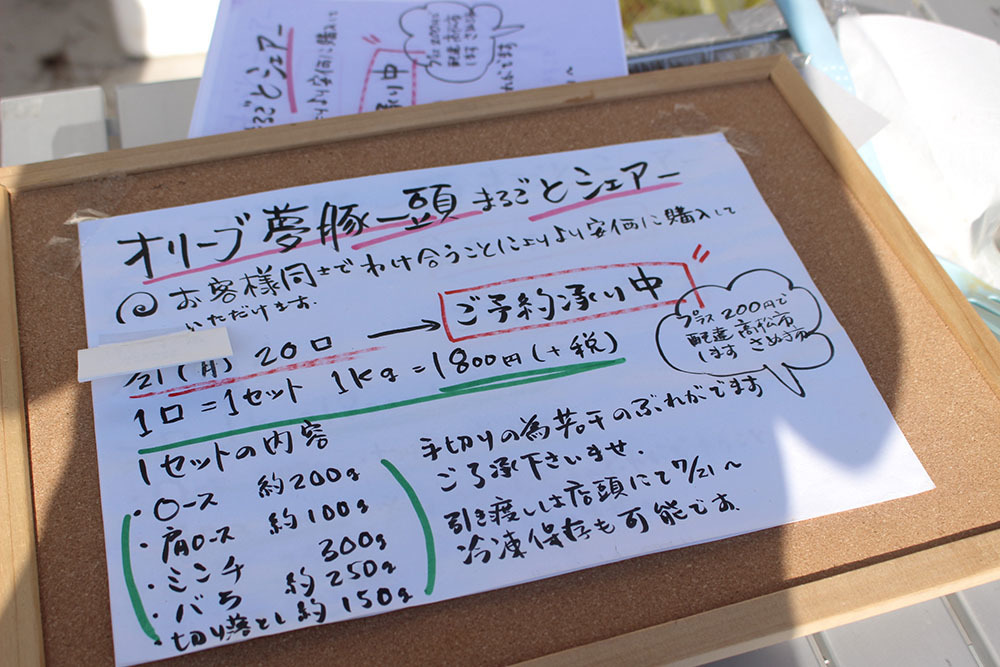 オリーブ夢豚一頭まるごとシェアー
お客様同士でわけ合うことによりより安価に購入して
いただけます.
/21(月) 20口 → ご予約承り中
1口=1セット 1kg=1800円(+税)
プラス200円で
配達 高松市
します さぬき市
1セットの内容
・ロース 約200g
・肩ロース 約100g
・ミンチ 300g
・バラ 約250g
・切り落とし 約150g
手切りの為若干のぶれがでます
ご了承下さいませ.
引き渡しは店頭にて7/21〜
冷凍保存も可能です.
まるごとシェアー
より安価に購入して
承り中
プラス200円で
配達 高松市
します さぬき市